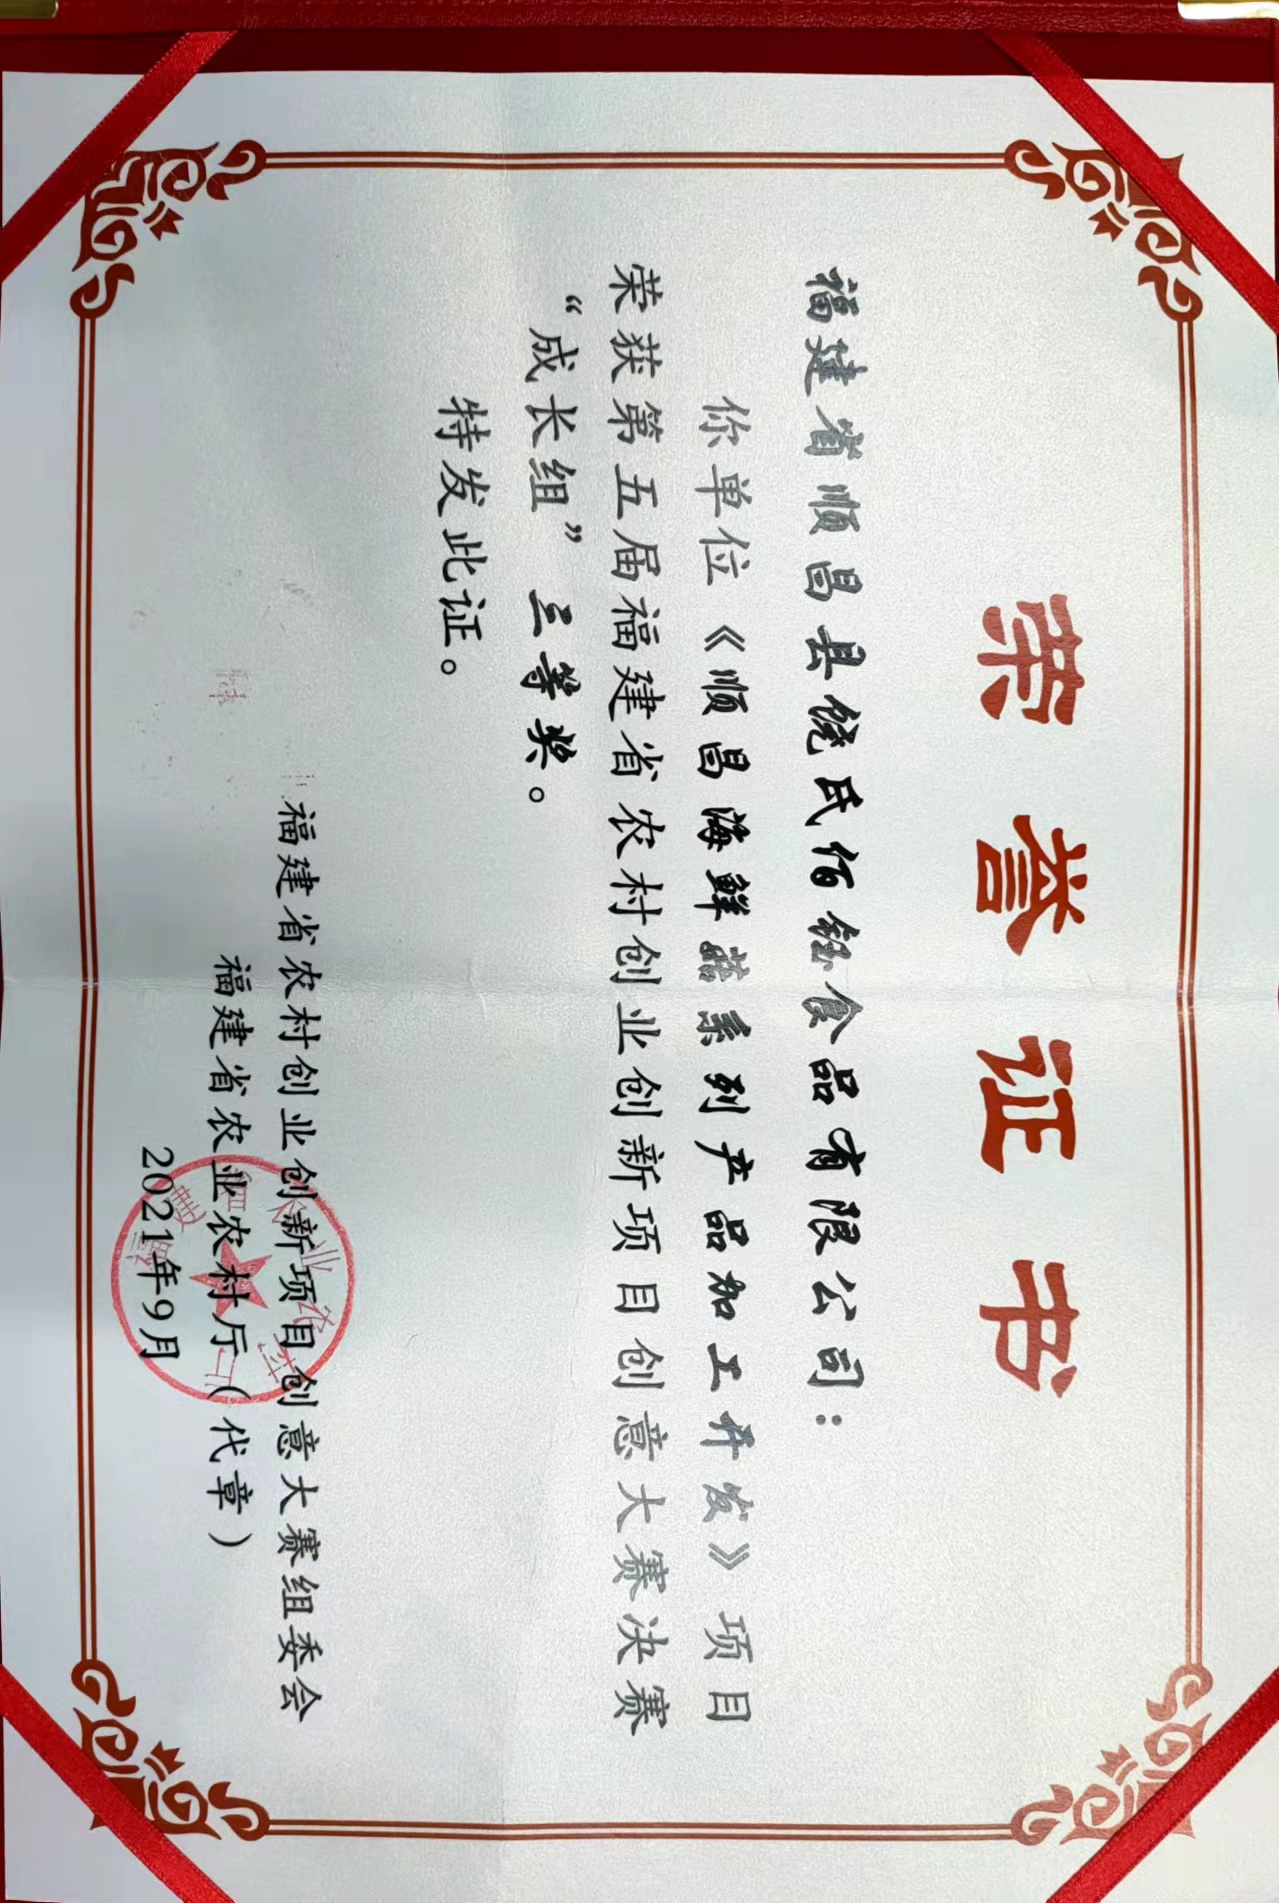 荣誉证书
福建省顺昌县饶氏佰钰食品有限公司：
你单位《顺昌海鲜菇系列产品加工开发》项目
荣获第五届福建省农村创业创新项目创意大赛决赛
“成长组”三等奖。
特发此证。
福建省农村创业创新项目创意大赛组委会
福建省农业农村厅（代章）
2021年9月